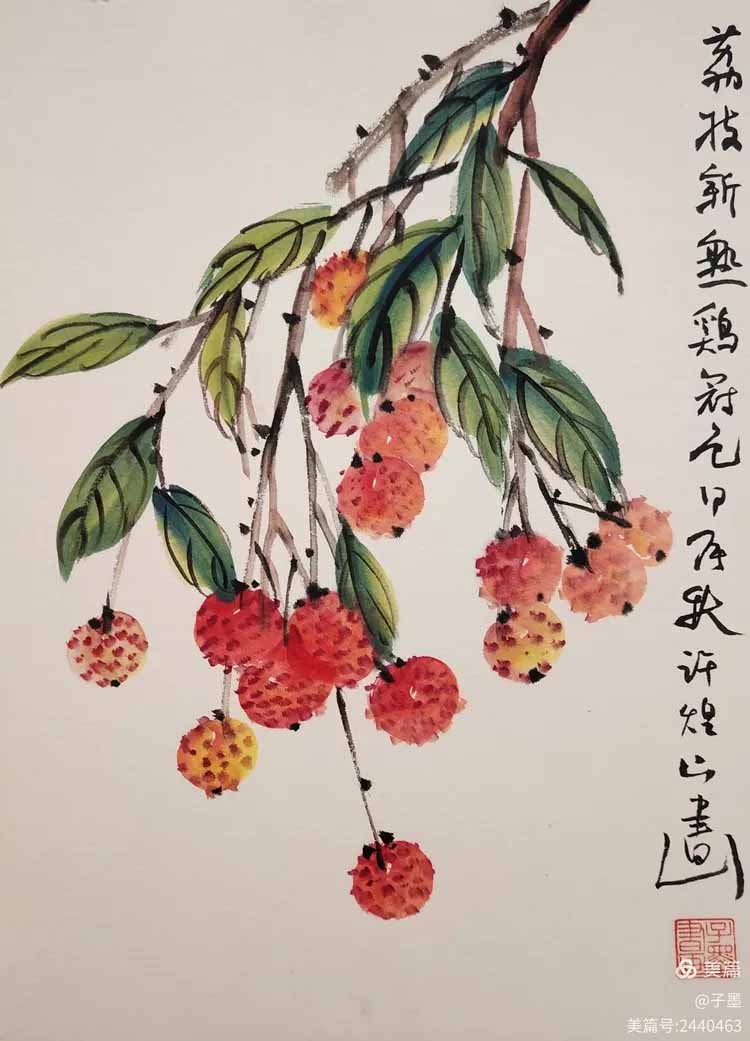 荔枝新熟鸡冠色秋许煌山畫
美篇
@子墨
美篇号:2440463